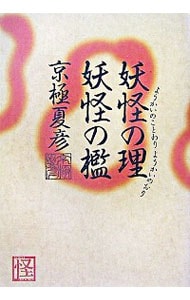 妖怪の理
妖怪の檻
ようかいのことわり ようかいのおり
京極夏彦
怪